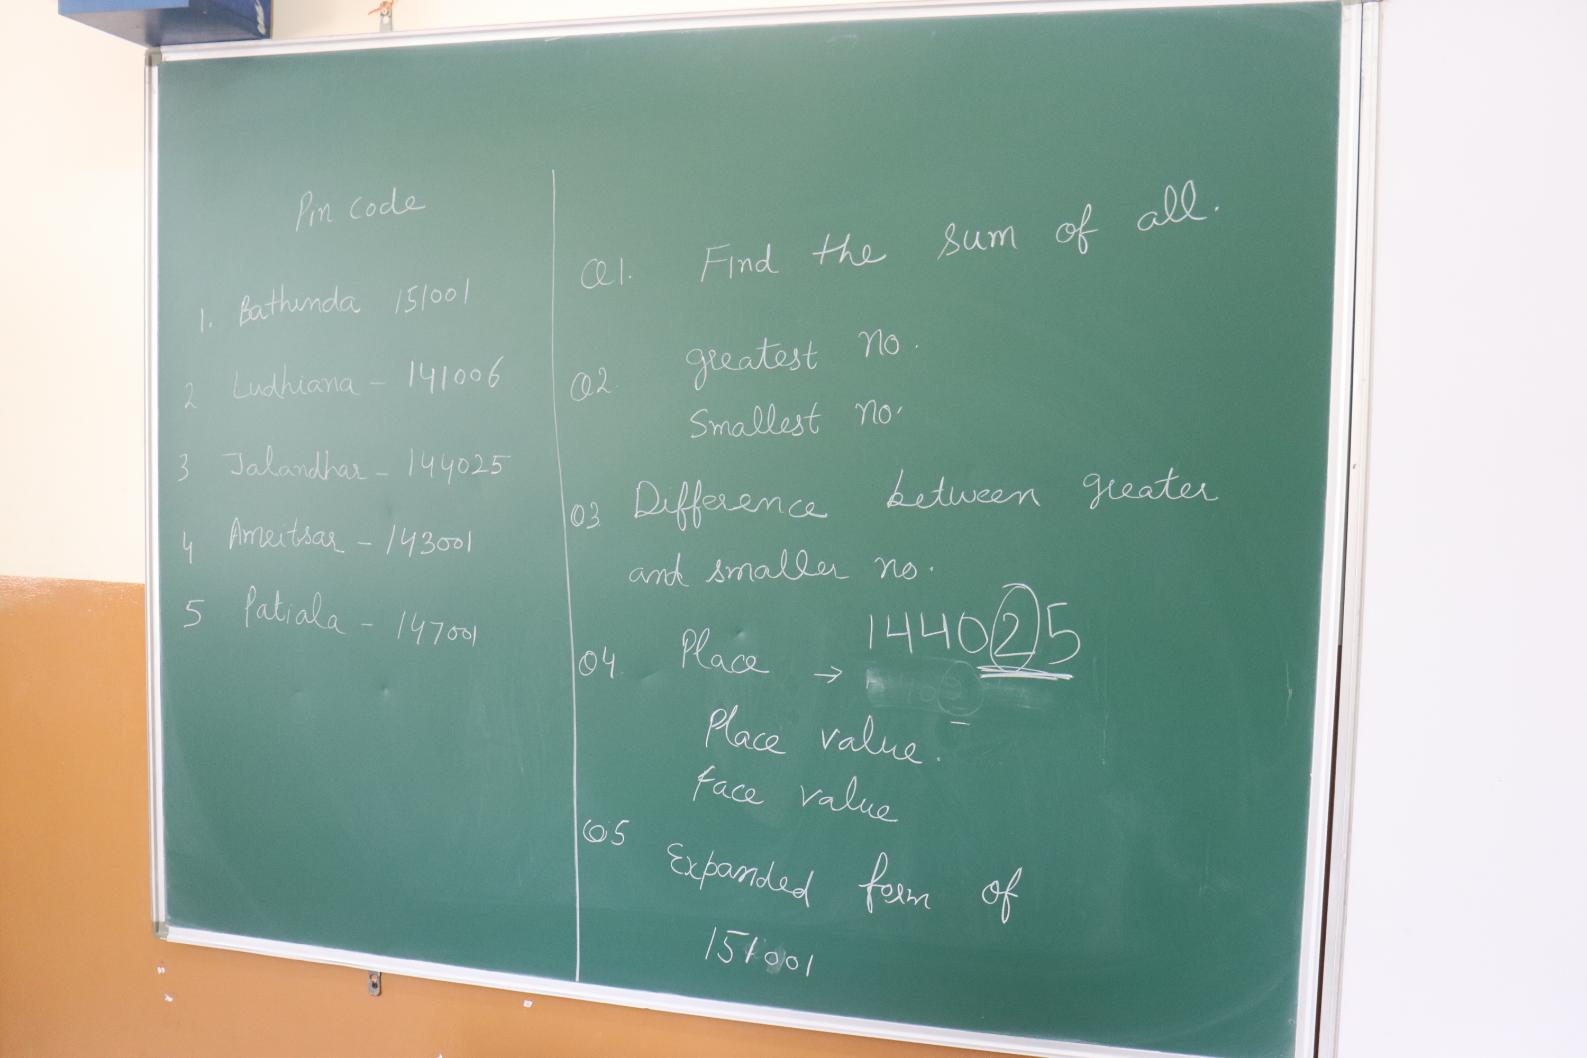 Pin code
1. Bathinda 151001
2 Ludhiana - 141006
3 Jalandhar - 144025
4 Amritsar - 143001
5 Patiala - 147001
Q1. Find the sum of all.
Q2. greatest no.
Smallest no.
Q3 Difference between greater
and smaller no.
Q4. Place → 144025
Place value.
Face value
Q5 Expanded form of
151001